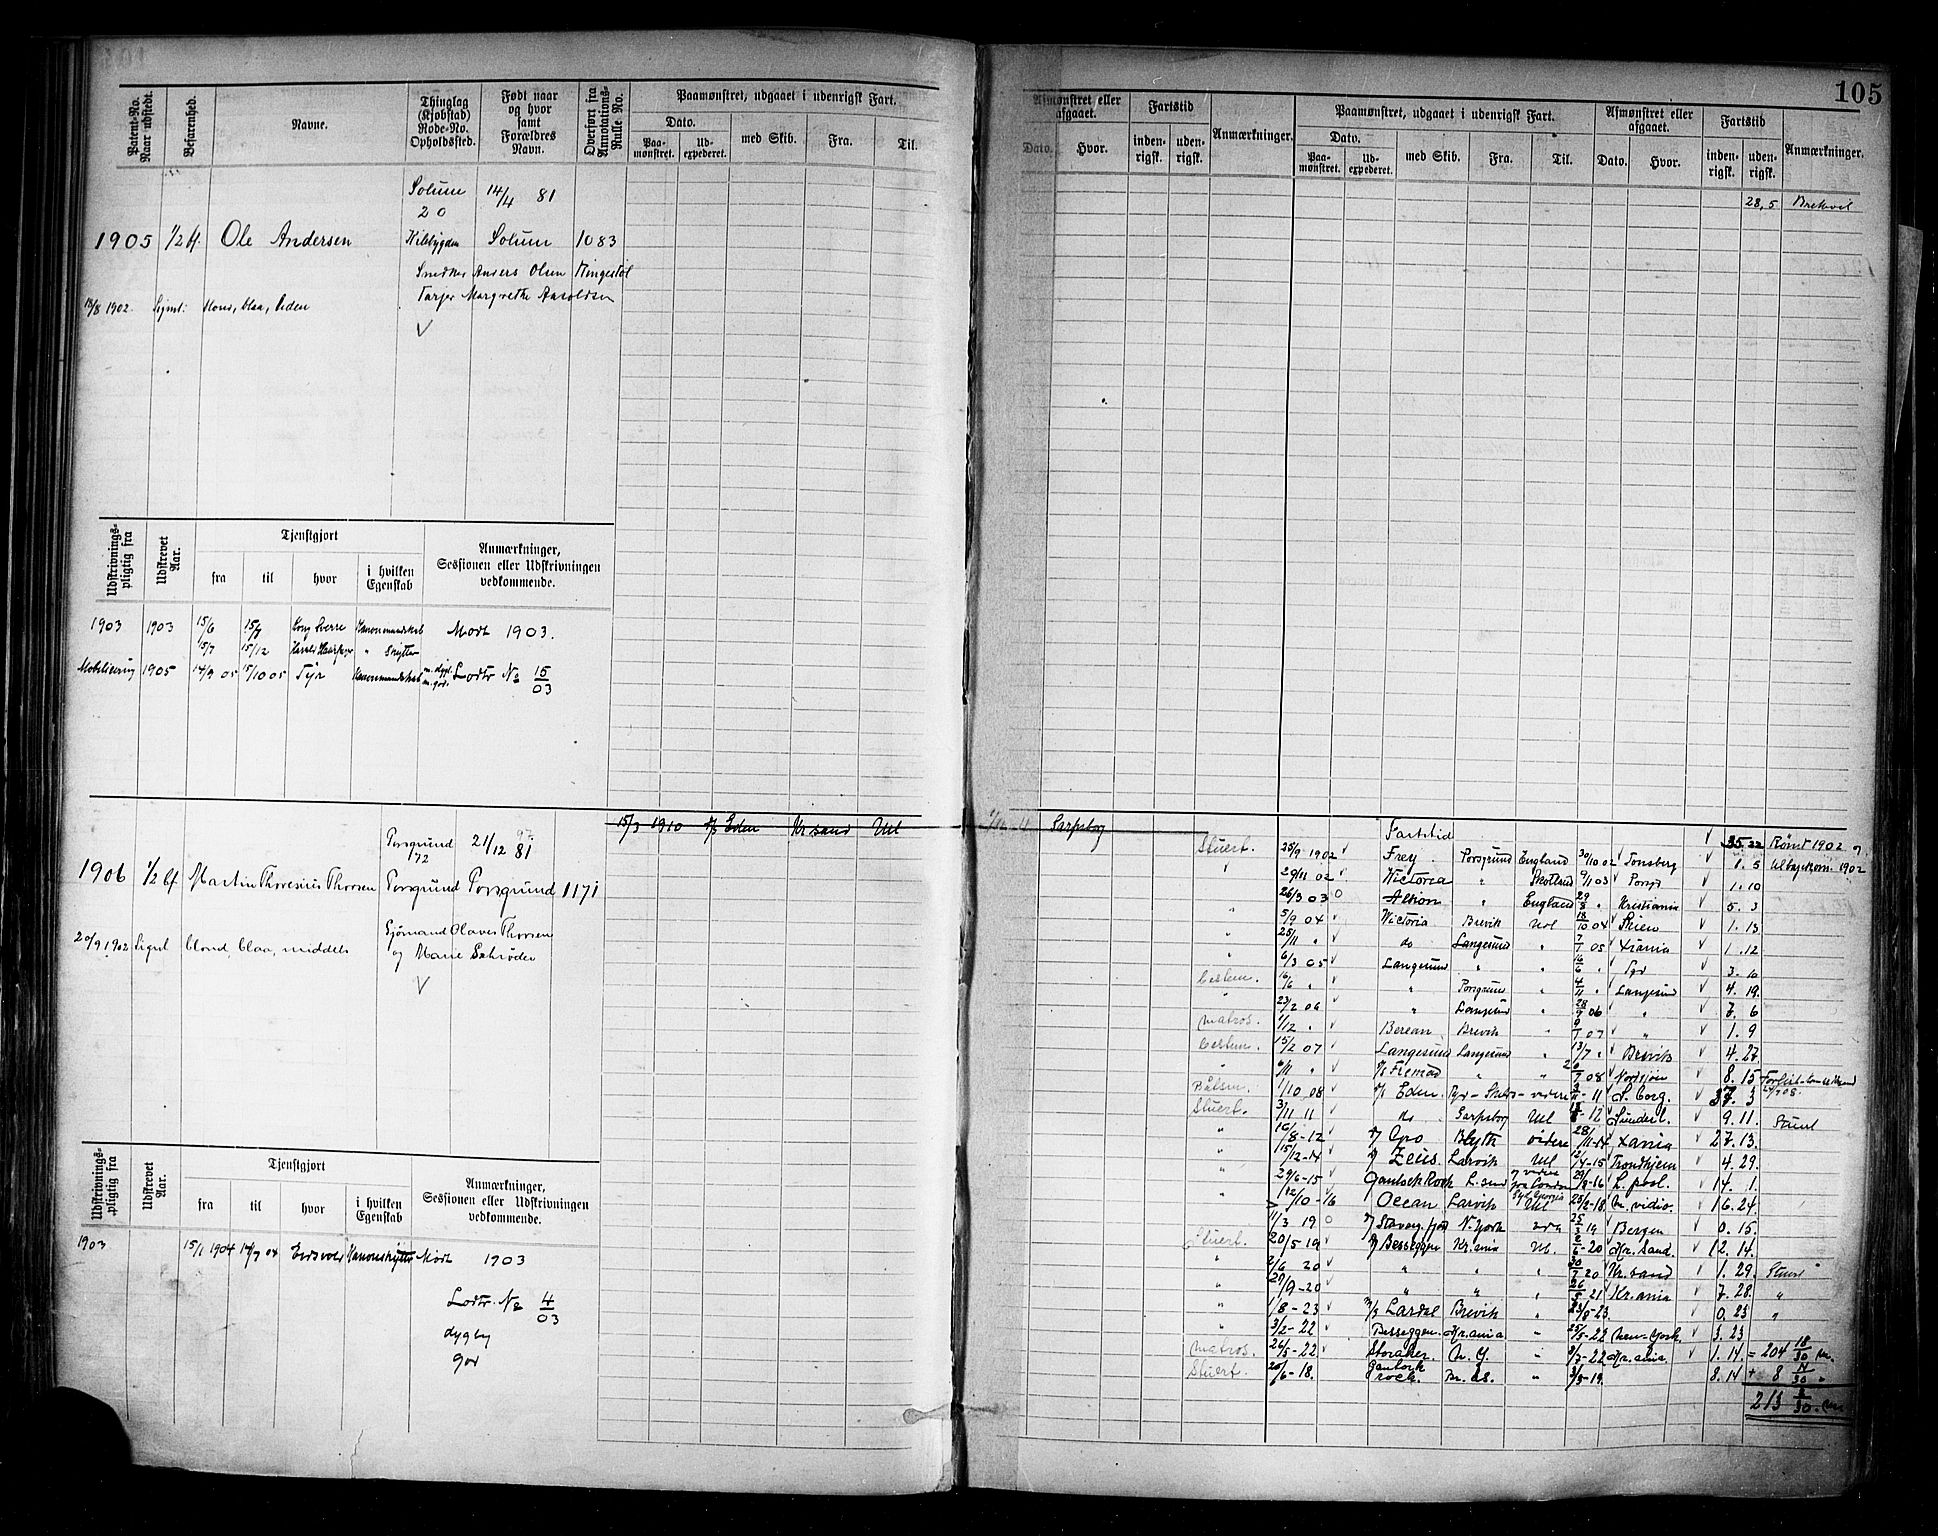 105
Patent-No. Naar udstedt.
Befarenhed.
Navne.
Thinglag (Kjøbstad) Rode-No. Opholdssted.
Født naar og hvor samt Forældres Navn.
Overført fra Annotations-Rulle No.
Paamønstret, udgaaet i udenrigsk Fart.
Dato.
Paa-mønstret.
Ud-expederet.
med Skib.
Fra.
Til.
Afmønstret eller afgaaet.
Dato.
Hvor.
Fartstid
inden-rigsk.
uden-rigsk.
Anmærkninger.
Paamønstret, udgaaet i udenrigsk Fart.
Dato.
Paa-mønstret.
Ud-expederet.
med Skib.
Fra.
Til.
Afmønstret eller afgaaet.
Dato.
Hvor.
Fartstid
inden-rigsk.
uden-rigsk.
Anmærkninger.
Solum 14/4 81
20
28,5
1905 1/2 Ole Andersen Solum 1083
Snedker Anders Olsen
Margrethe
18/8 1902 Signt: blaa,
Udskrivnings-pligtig fra
Udskrevet Aar.
Tjenstgjort
fra
til
hvor
i hvilken Egenskab
Anmærkninger, Sessionen eller Udskrivningen vedkommende.
1903 1903 15/6 15/7 Kong Sverre Kanonmandskab Mødt 1903.
15/7 15/12 Harald Haarfager "
Mobilisering 1905 14/9 05 15/10 05 Tyr Kanonmandskab Lodtr No 15/03
15/3 1910 Eden Kr sand Utl
Sarpsborg
Porsgrund 21/12 81
172
1906 1/2 Martin Thoresius Thorsen Porsgrund Porsgrund 1171
Sjømand Olaves Thorsen
20/9 1902 Signl blond, blaa, middels og Marie Schrøder
Fartstid Rømt 1902
Stuert. 25/9 1902 Frey Porsgrund England 30/10 02 Tonsberg 1. 5 1902
29/11 02 Victoria " Skotland 9/1 03 Porsgr 1. 10
26/3 03 Albion " England Kristiania 5. 3
5/9 04 Victoria Brevik Utl 18/10 04 Skien 1. 13
25/11 " do Langesund " 7/1 05 Xrania 1. 12
6/3 05 Langesund " " 16/6 " 3. 10
16/6 " " Porsgrund " 4/11 " Langesund 4. 19
23/2 06 " Langesund " 28/9 06 " 7. 6
Matros. 1/12 " Berean Brevik " 9/1 07 " 1. 9
15/2 07 Langesund Langesund " 13/7 " Brevik 4. 27
Fremad " " 08 Nordsjøen 8. 15
Båtsm. 1/10 08 Eden videre 11 S. borg. 37. 3
Stuert. 3/11 11 do Sarpsborg Utl 12 Sunderl. 9. 11 Stuert
" 16/8-12 Gro Blyth videre 28/11-14 Xania 27. 13.
" 15/12-14 Zeus Larvik Utl 12/4-15 Trondhjem 4. 29.
" 29/6-15 Gantock Rock L. sund 29/8-16 L. pool. 14. 1.
" 12/10-16 Ocean Larvik Utl 25/2-18 M. vidio. 16. 24.
11/3 19 N. York 25/3 19 Bergen 0. 15.
Stuert. 20/5 19 Besseggen Kr. ania Utl. 2/6-20 Kr. Sand. 12. 14.
" 2/6 20 " " " 30/7 20 Kr. sand 1. 29. Stuert
" 29/9-20 " " " 26/5 21 Kr. ania 7. 28. "
" 1/8-23 M/S Lardal Brevik " 23/8-23 0. 23 "
" 3/2-22 Besseggen Kr. ania " 25/5-22 New-York. 3. 23
Matros. 26/5-22 Storaker. N. Y. " 9/7-22 Kr. ania. 1. 14. = 204 18/30 m.
Stuert. 20/6-18. Gantock rock. " 3/3-19. 8. 14 + 8 14/30 "
213 2/30 m
Udskrivnings-pligtig fra
Udskrevet Aar.
Tjenstgjort
fra
til
hvor
i hvilken Egenskab
Anmærkninger, Sessionen eller Udskrivningen vedkommende.
1903 15/1 1904 14/7 04 Eidsvold Mødt 1903
Lodtr. No 4/03
dygtig
god